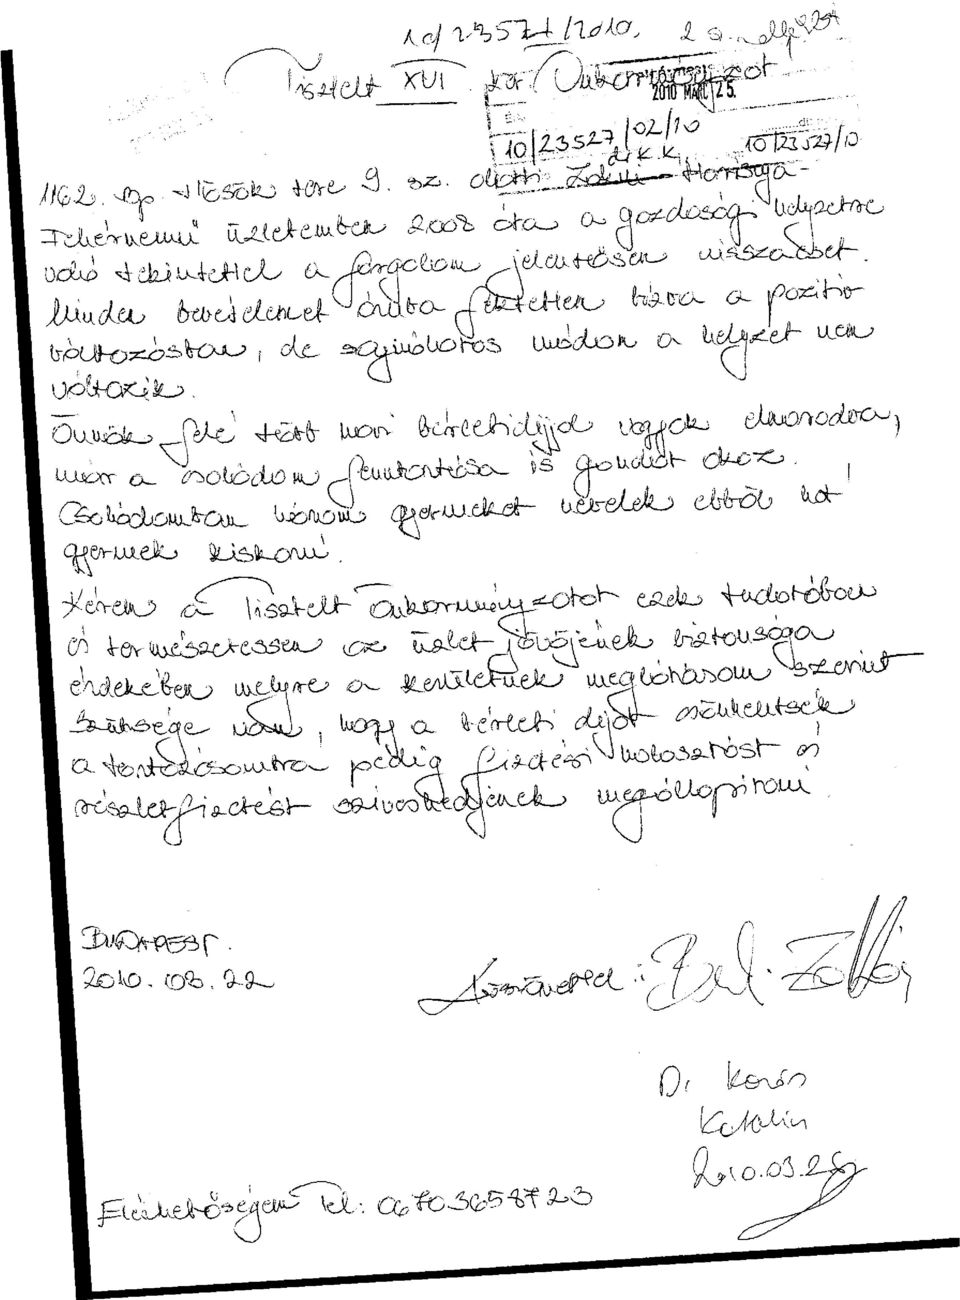 10/23527/2010.
Tisztelt XVI ker. Önkormányzat!
2010 MÁRC 25.
10/23527/02/10
dr K.K.
10/23527/10
1162. Bp. Hősök tere 9. sz. alatti Harisnya-
Fehérnemű üzletemben 2008 óta a gazdasági helyzetre
való tekintettel a forgalom jelentősen visszaesett.
Minden bevételemet áruba fektettem bízva a pozitív
változásban, de sajnálatos módon a helyzet nem
változik.
Önök felé több havi bérletidíjjal vagyok elmaradva,
már a családom fenntartása is gondot okoz.
Családomban három gyermeket nevelek ebből két
gyermek kiskorú.
Kérem a Tisztelt Önkormányzatot ezek tudatában
és természetessen az üzlet jövőjének biztonsága
érdekében melyre a kerületnek meglátásom szerint
szüksége van, hogy a bérleti díjat csökkentsék
a tartozásomra pedig fizetési halasztást és
részletfizetést szíveskedjenek megállapítani.
BUDAPEST.
2010. 03. 22
Köszönettel:
Dr Kovács
Katalin
2010.03.26
Elérhetőségem Tel: 06703658723